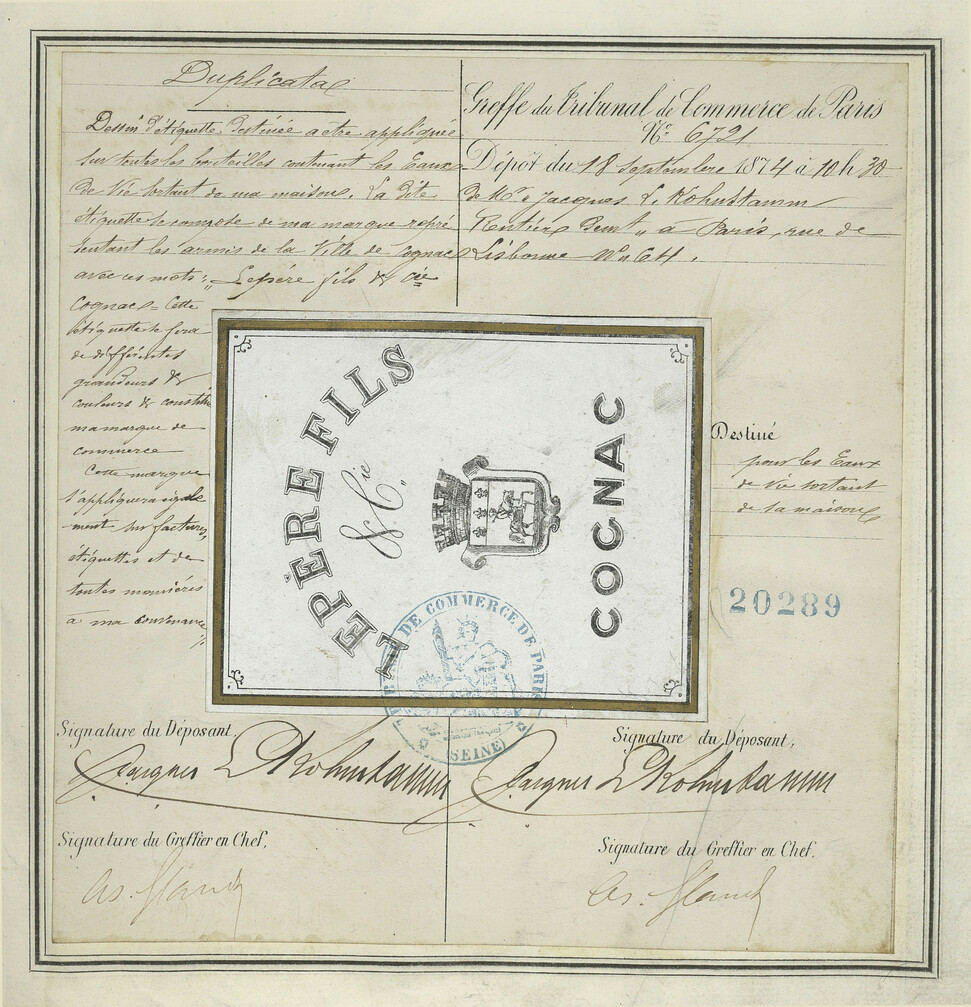 Duplicata
Dessin d'étiquette destinée a être appliquée
sur toutes les bouteilles contenant les Eaux
de Vie sortant de ma maison. La dite
étiquette se compose de ma marque repré
sentant les armes de la Ville de Cognac
avec ces mots: „ Lepére fils & Cie
Cognac = Cette
étiquette se fera
de différentes
grandeurs &
couleurs &
ma marque de
commerce
Cette marque
s'appliquera égale
ment sur factures,
étiquettes et de
toutes manières
a ma convenance
Greffe du Tribunal de Commerce de Paris
No 6721
Dépôt du 18 Septembre 1874 à 10 h 30
de Mr Jacques L. Kohnstamm
Rentier Demt „ a Paris, rue de
Lisbonne No 64.
LEPÈRE FILS
& Cie
COGNAC
Destiné
pour les Eaux
de Vie sortant
de sa maison
20289
TRIBUNAL DE COMMERCE DE PARIS
(SEINE)
Signature du Déposant,
Jacques L Kohnstamm
Signature du Déposant,
Jacques L Kohnstamm
Signature du Greffier en Chef,
Signature du Greffier en Chef.